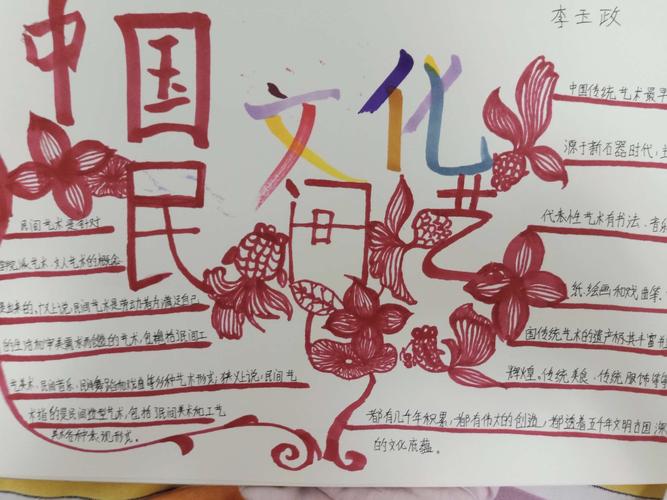 李玉政
中国
文化
民间艺
民间艺术是针对
学院派艺术、文人艺术的概念
提出来的。广义上说,民间艺术是劳动者为满足自己
的生活和审美需求而创造的艺术,包括了民间工
艺美术、民间音乐、民间舞蹈和戏曲等多种艺术形式;狭义上说,民间艺
术指的是民间造型艺术,包括了民间美术和工艺
美术各种表现形式。
中国传统艺术最早
源于新石器时代,
代表性艺术有书法、音乐
纸、绘画和戏曲等。
国传统艺术的遗产极其丰富
辉煌。传统美食、传统服饰等
都有几千年积累,都有伟大的创造,都透着五千年文明古国深
的文化底蕴。